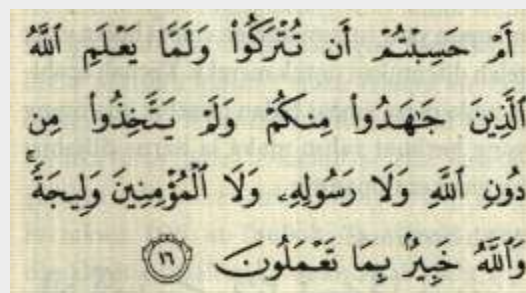 أَمْ حَسِبْتُمْ أَن تُتْرَكُوا۟ وَلَمَّا يَعْلَمِ ٱللَّهُ
ٱلَّذِينَ جَٰهَدُوا۟ مِنكُمْ وَلَمْ يَتَّخِذُوا۟ مِن
دُونِ ٱللَّهِ وَلَا رَسُولِهِۦ وَلَا ٱلْمُؤْمِنِينَ وَلِيجَةً ۚ
وَٱللَّهُ خَبِيرٌۢ بِمَا تَعْمَلُونَ ١٦